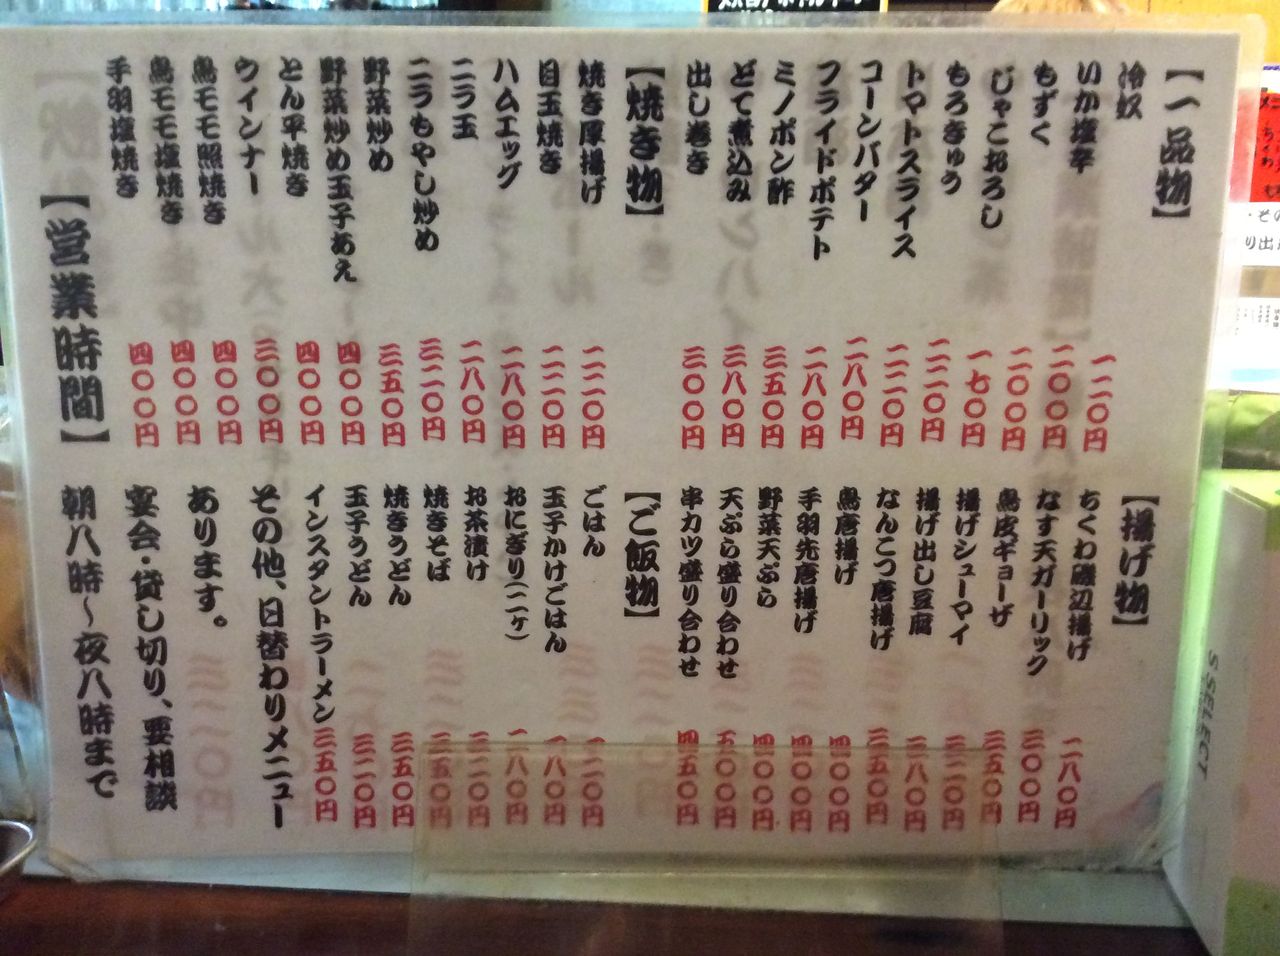 【一品物】
冷奴 一二〇円
いか塩辛 二〇〇円
もずく 二〇〇円
じゃこおろし 一七〇円
もろきゅう 二二〇円
トマトスライス 二二〇円
コーンバター 二八〇円
フライドポテト 二八〇円
ミノポン酢 三五〇円
どて煮込み 三八〇円
出し巻き 三〇〇円
【焼き物】
焼き厚揚げ 二二〇円
目玉焼き 二二〇円
ハムエッグ 二八〇円
ニラ玉 二八〇円
ニラもやし炒め 三二〇円
野菜炒め 三五〇円
野菜炒め玉子あえ 四〇〇円
とん平焼き 四〇〇円
ウインナー 三〇〇円
鳥モモ照焼き 四〇〇円
鳥モモ塩焼き 四〇〇円
手羽塩焼き 四〇〇円
【営業時間】
【揚げ物】
ちくわ磯辺揚げ 二八〇円
なす天ガーリック 三〇〇円
鳥皮ギョーザ 三五〇円
揚げシューマイ 三二〇円
揚げ出し豆腐 三八〇円
なんこつ唐揚げ 三五〇円
鳥唐揚げ 四〇〇円
手羽先唐揚げ 四〇〇円
野菜天ぷら 四〇〇円
天ぷら盛り合わせ 五〇〇円
串カツ盛り合わせ 四五〇円
【ご飯物】
ごはん 一二〇円
玉子かけごはん 一八〇円
おにぎり(二ヶ) 二八〇円
お茶漬け 三二〇円
焼きそば 三五〇円
焼きうどん 三五〇円
玉子うどん 三二〇円
インスタントラーメン 三五〇円
その他、日替わりメニュー
あります。
宴会・貸し切り、要相談
朝八時～夜八時まで
SSELECT